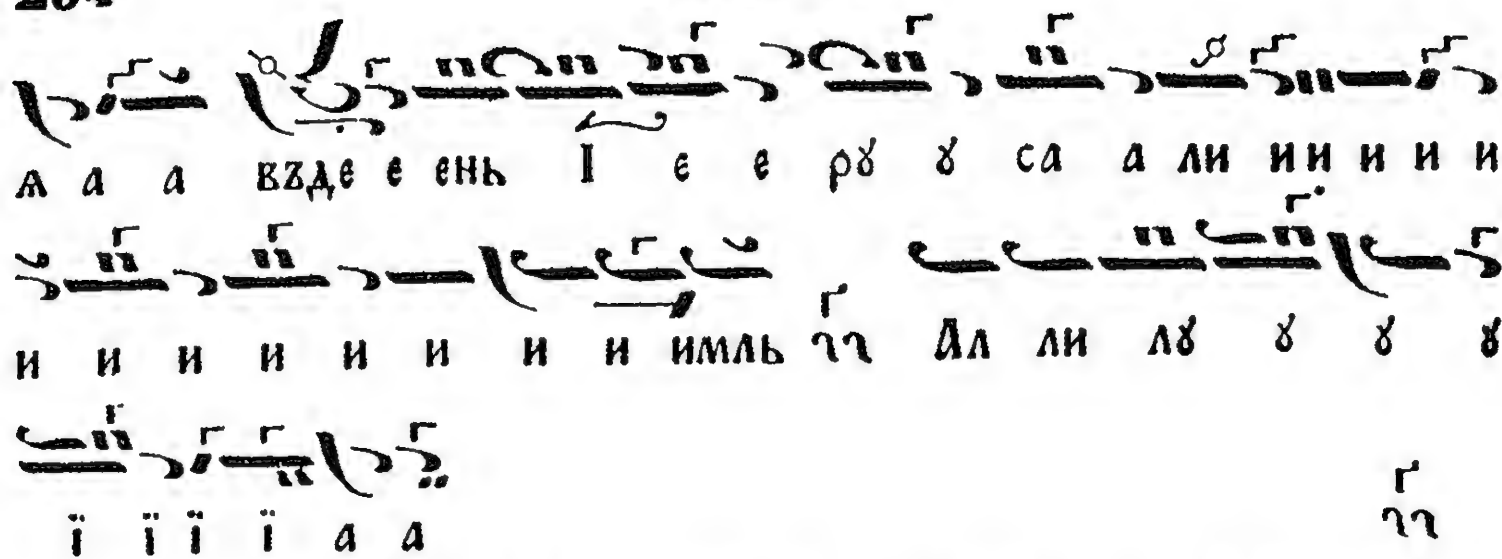 ѧ а а възде е ень І е е рȣ ȣ са а ли ии и и и
и и и и и и и и имль Ал ли лȣ ȣ ȣ ȣ
ї ї ї ї а а